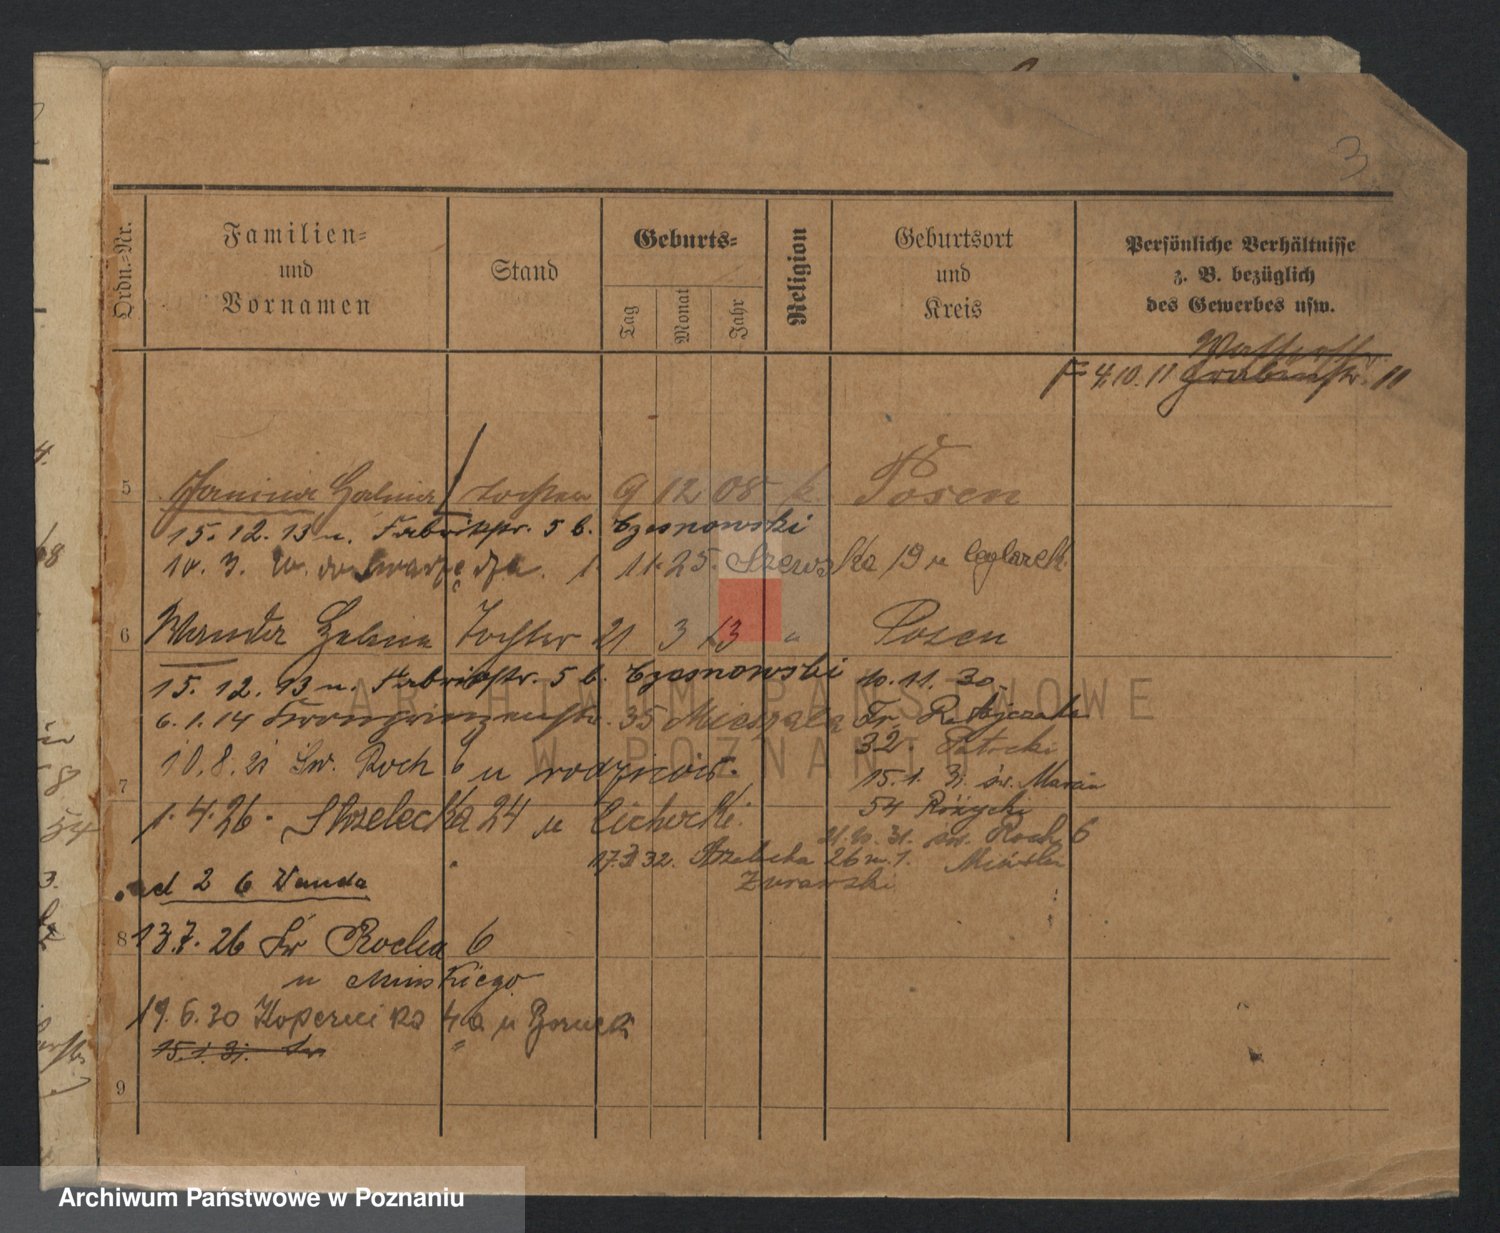 3
Ordn.-Nr.
Familien-
und
Vornamen
Stand
Geburts-
Tag
Monat
Jahr
Religion
Geburtsort
und
Kreis
Persönliche Verhältnisse
z. B. bezüglich
des Gewerbes usw.
4.10.11 11
5 Janina Halina Tochter 9 12 08 k. Posen
15. 12. 13 u. Fabrikstr. 5 b. Czesnowski
10. 3. 1 11.25. Szewska 19 u Ceglarek
6 Wanda Helena Tochter 21 3 13 " Posen
15. 12. 13 u. Fabrikstr. 5 b. Czesnowski
10.11.30.
6.1.14 Kronprinzenstr. 35 Mieszala
Fr. Ratajczaka
32 Patocki
10.8.21 Św. Roch 6 u rodziców.
15.1.31 św. Marcin
7
54 Różycki
1.4.26. Strzelecka 24 u Cichocki
21.10.31. św. Roch 6
17.3.32. Strzelecka 26 m. 1.
Żurawski
ad 2 6 Wanda
8 13.7.26 Św Rocha 6
u Mińskiego
19.6.30 Kopernika 4a u
15.1.31.
9
ARCHIWUM PAŃSTWOWE
W POZNANIU
Archiwum Państwowe w Poznaniu